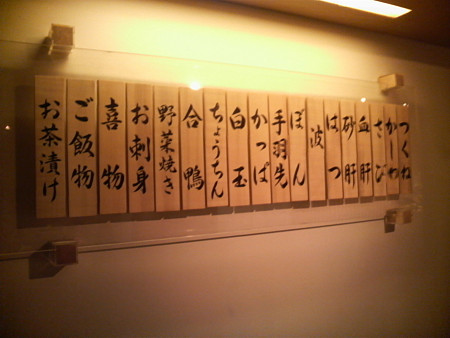 つくね
かしわ
さび
血肝
砂肝
はつ
波
ぼん
手羽先
かっぱ
白玉
ちょうちん
合鴨
野菜焼き
お刺身
喜物
ご飯物
お茶漬け